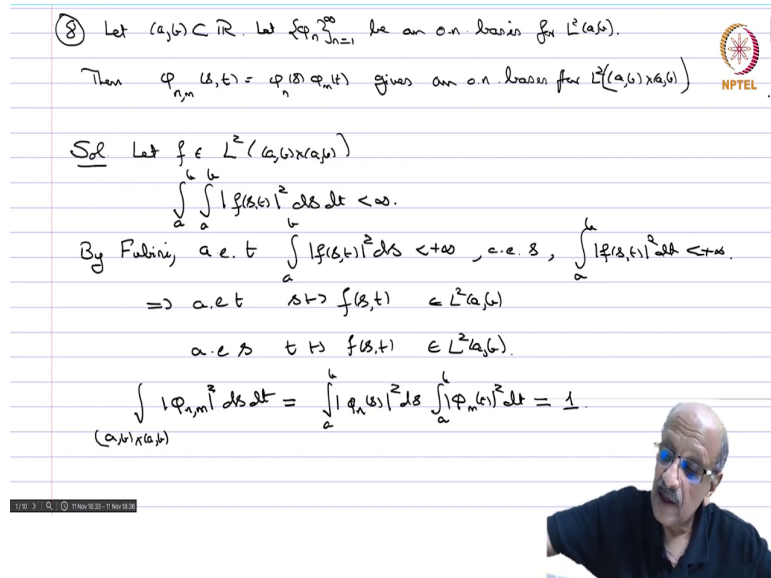 ⑧ Let (a,b) ⊂ ℝ. Let {φ_n}_{n=1}^∞ be an o.n. basis for L²(a,b).
Then φ_{n,m}(s,t) = φ_n(s) φ_m(t) gives an o.n. bases for L²((a,b)×(a,b))
NPTEL
Sol. Let f ∈ L²((a,b)×(a,b))
∫_a^b ∫_a^b |f(s,t)|² ds dt < ∞.
By Fubini, a.e. t ∫_a^b |f(s,t)|² ds < +∞, a.e. s, ∫_a^b |f(s,t)|² dt < +∞.
⇒ a.e t s ↦ f(s,t) ∈ L²(a,b)
a.e s t ↦ f(s,t) ∈ L²(a,b).
∫_{(a,b)×(a,b)} |φ_{n,m}|² ds dt = ∫_a^b |φ_n(s)|² ds ∫_a^b |φ_m(t)|² dt = 1.
1/10 11 Nov 18:33 – 11 Nov 18:36